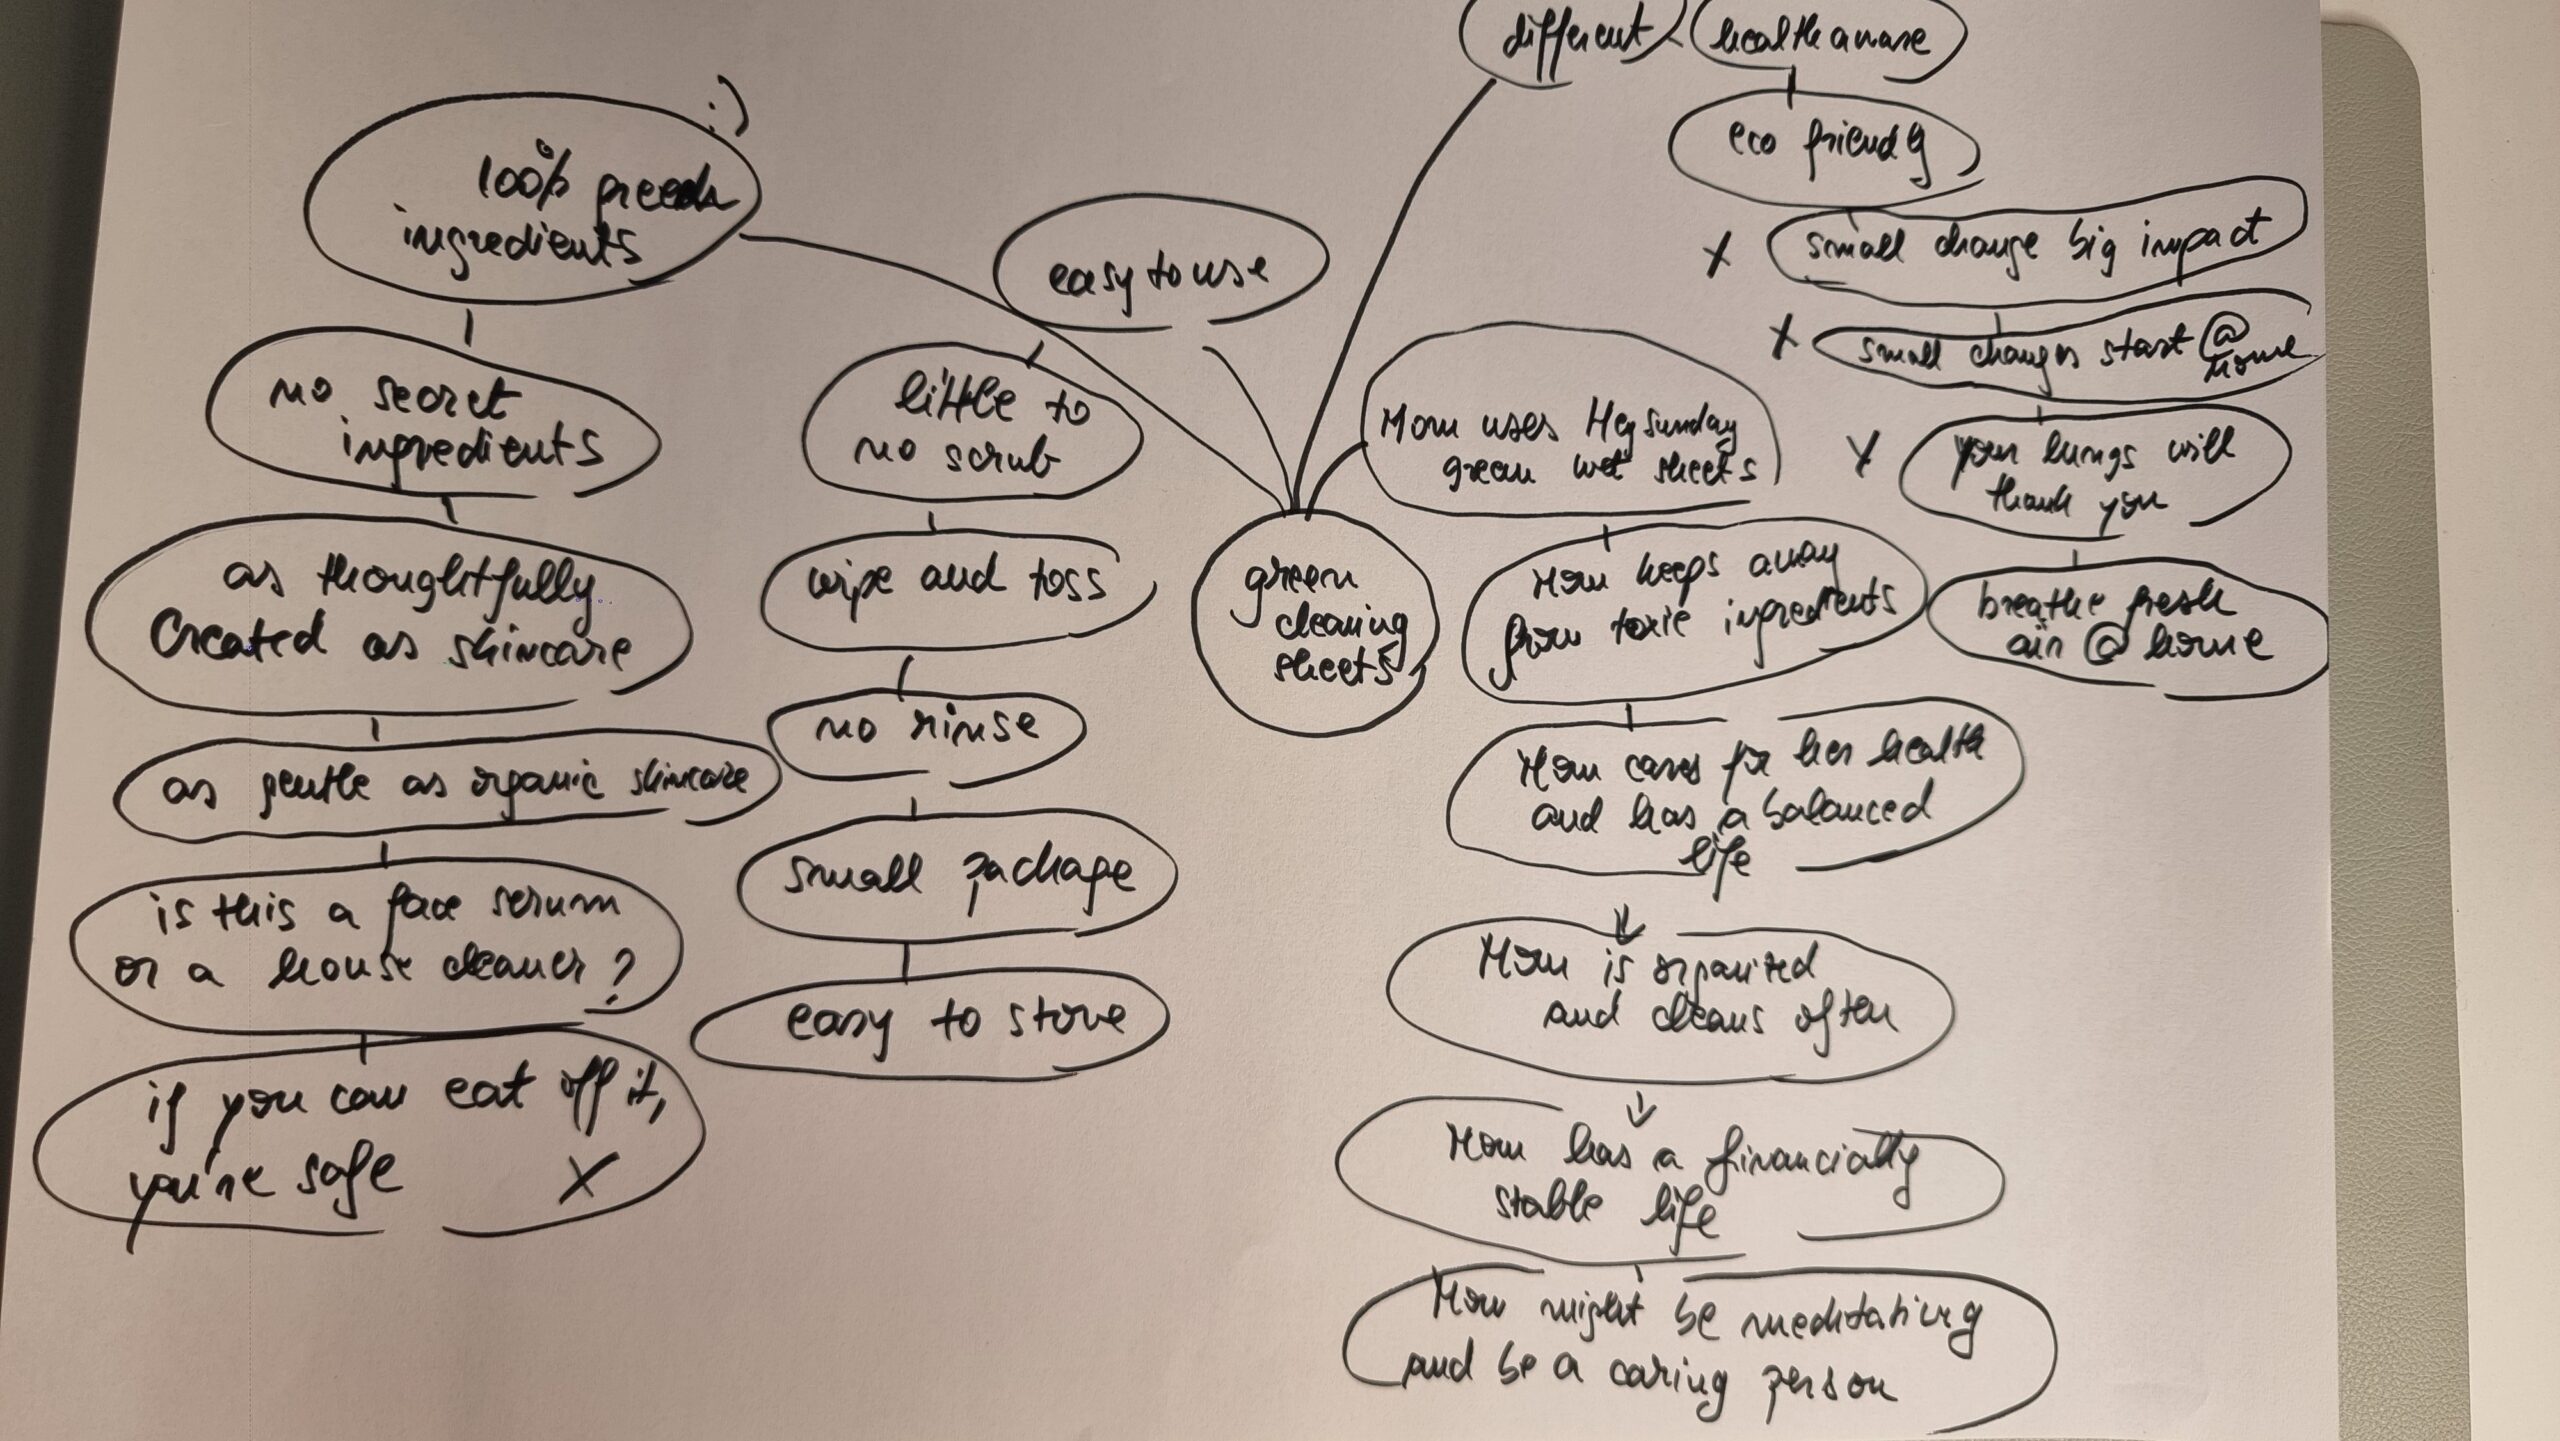 different
health aware
eco friendly
small change big impact
X
small changes start @
home
X
your lungs will
thank you
X
breathe fresh
air @ home
:)
100%
ingredients
no secret
ingredients
as thoughtfully
created as skincare
as gentle as organic skincare
is this a face serum
or a house cleaner?
if you can eat off it,
you're safe X
easy to use
little to
no scrub
wipe and toss
no rinse
small package
easy to store
green
cleaning
sheets
Mom uses Hey Sunday
green wet sheets
Mom keeps away
from toxic ingredients
Mom cares for her health
and has a balanced
life
Mom is organized
and cleans often
Mom has a financially
stable life
Mom might be meditating
and be a caring person